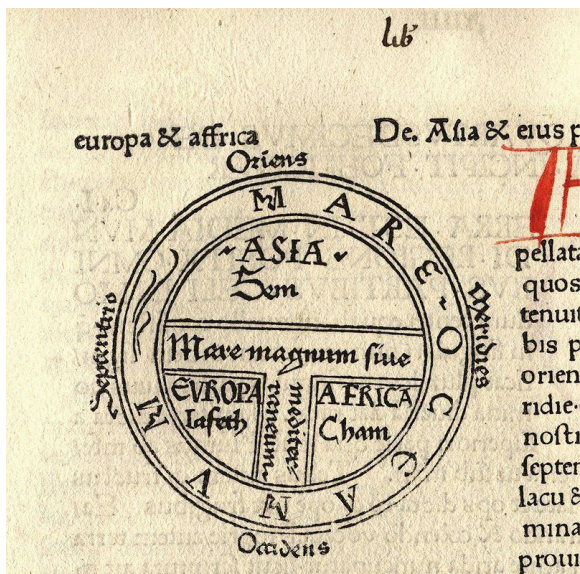 lib
europa & affrica
De. Asia & eius p
Oriens
MARE OCEANVM
Septentrio
Meridies
ASIA
Sem
Mare magnum siue
mediter
raneum
EVROPA
Iafeth
AFRICA
Cham
Occidens
pellata
quos
tenuit
bis p
orien
ridie.
nostri
septen
lacu &
mina
prou